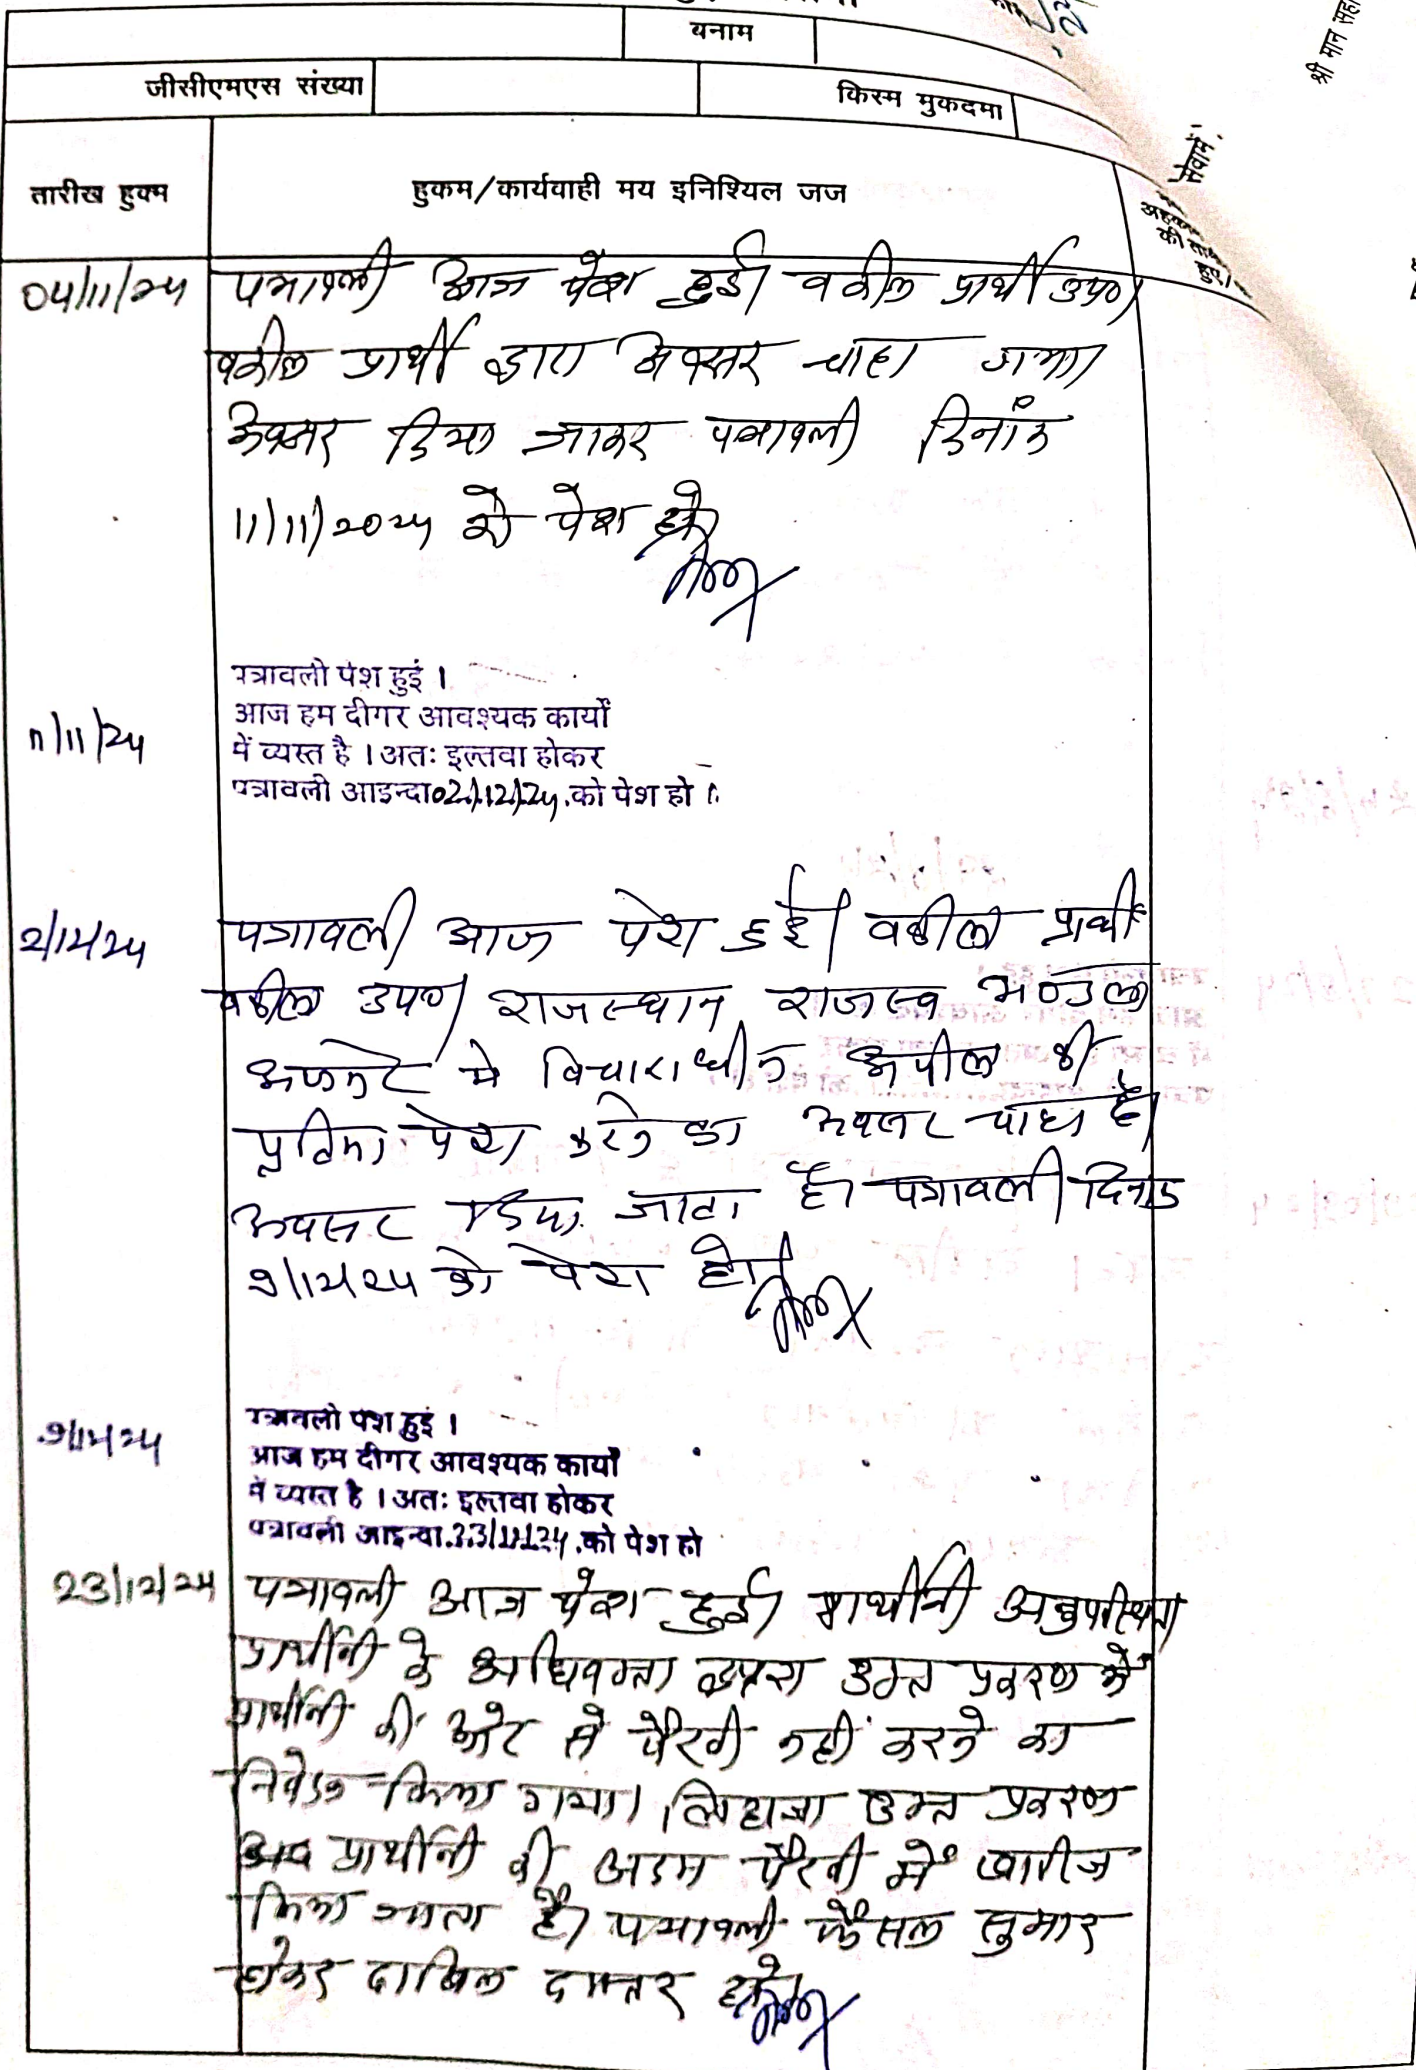 बनाम
जीसीएमएस संख्या
किस्म मुकदमा
तारीख हुक्म
हुकम/कार्यवाही मय इनिश्यिल जज
अहकाम
की ता
हुए।
सेवामें,
श्री मान सहा
04/11/24
पत्रावली आज पेश हुई। वकील प्रार्थी उप०।
वकील प्रार्थी द्वारा अवसर चाहा गया।
अवसर दिया जाकर पत्रावली दिनांक
11/11/2024 को पेश हो।
11/11/24
पत्रावली पेश हुई ।
आज हम दीगर आवश्यक कार्यों
में व्यस्त है । अतः इल्तवा होकर
पत्रावली आइन्दा 02/12/24 को पेश हो ।
2/12/24
पत्रावली आज पेश हुई। वकील प्रार्थी
वकील उप०। राजस्थान राजस्व मण्डल
अजमेर में विचाराधीन अपील की
प्रतिया पेश करने का अवसर चाहा है।
अवसर दिया जाता है। पत्रावली दिनांक
9/12/24 को पेश हो।
9/12/24
पत्रावली पेश हुई ।
आज हम दीगर आवश्यक कार्यों
में व्यस्त है । अतः इल्तवा होकर
पत्रावली आइन्दा 23/12/24 को पेश हो
23/12/24
पत्रावली आज पेश हुई। प्रार्थीनी अनुपस्थित।
प्रार्थीनी के अधिवक्ता द्वारा उक्त प्रकरण में
प्रार्थीनी की ओर से पैरवी नहीं करने का
निवेदन किया गया। लिहाजा उक्त प्रकरण
प्रार्थीनी की अदम पैरवी में खारीज
किया जाता है। पत्रावली फैसल सुमार
होकर दाखिल दफ्तर हो।